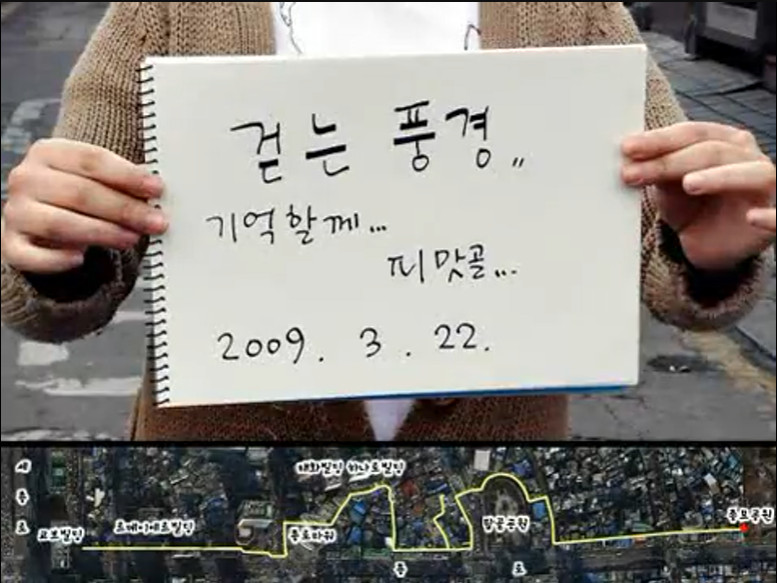 걷는 풍경〃
기억할께...
피맛골...
2009. 3. 22.
태화빌딩 하나로빌딩
세종로
교보빌딩
르메이에르빌딩
종로타워
탑골공원
종묘공원
종 로